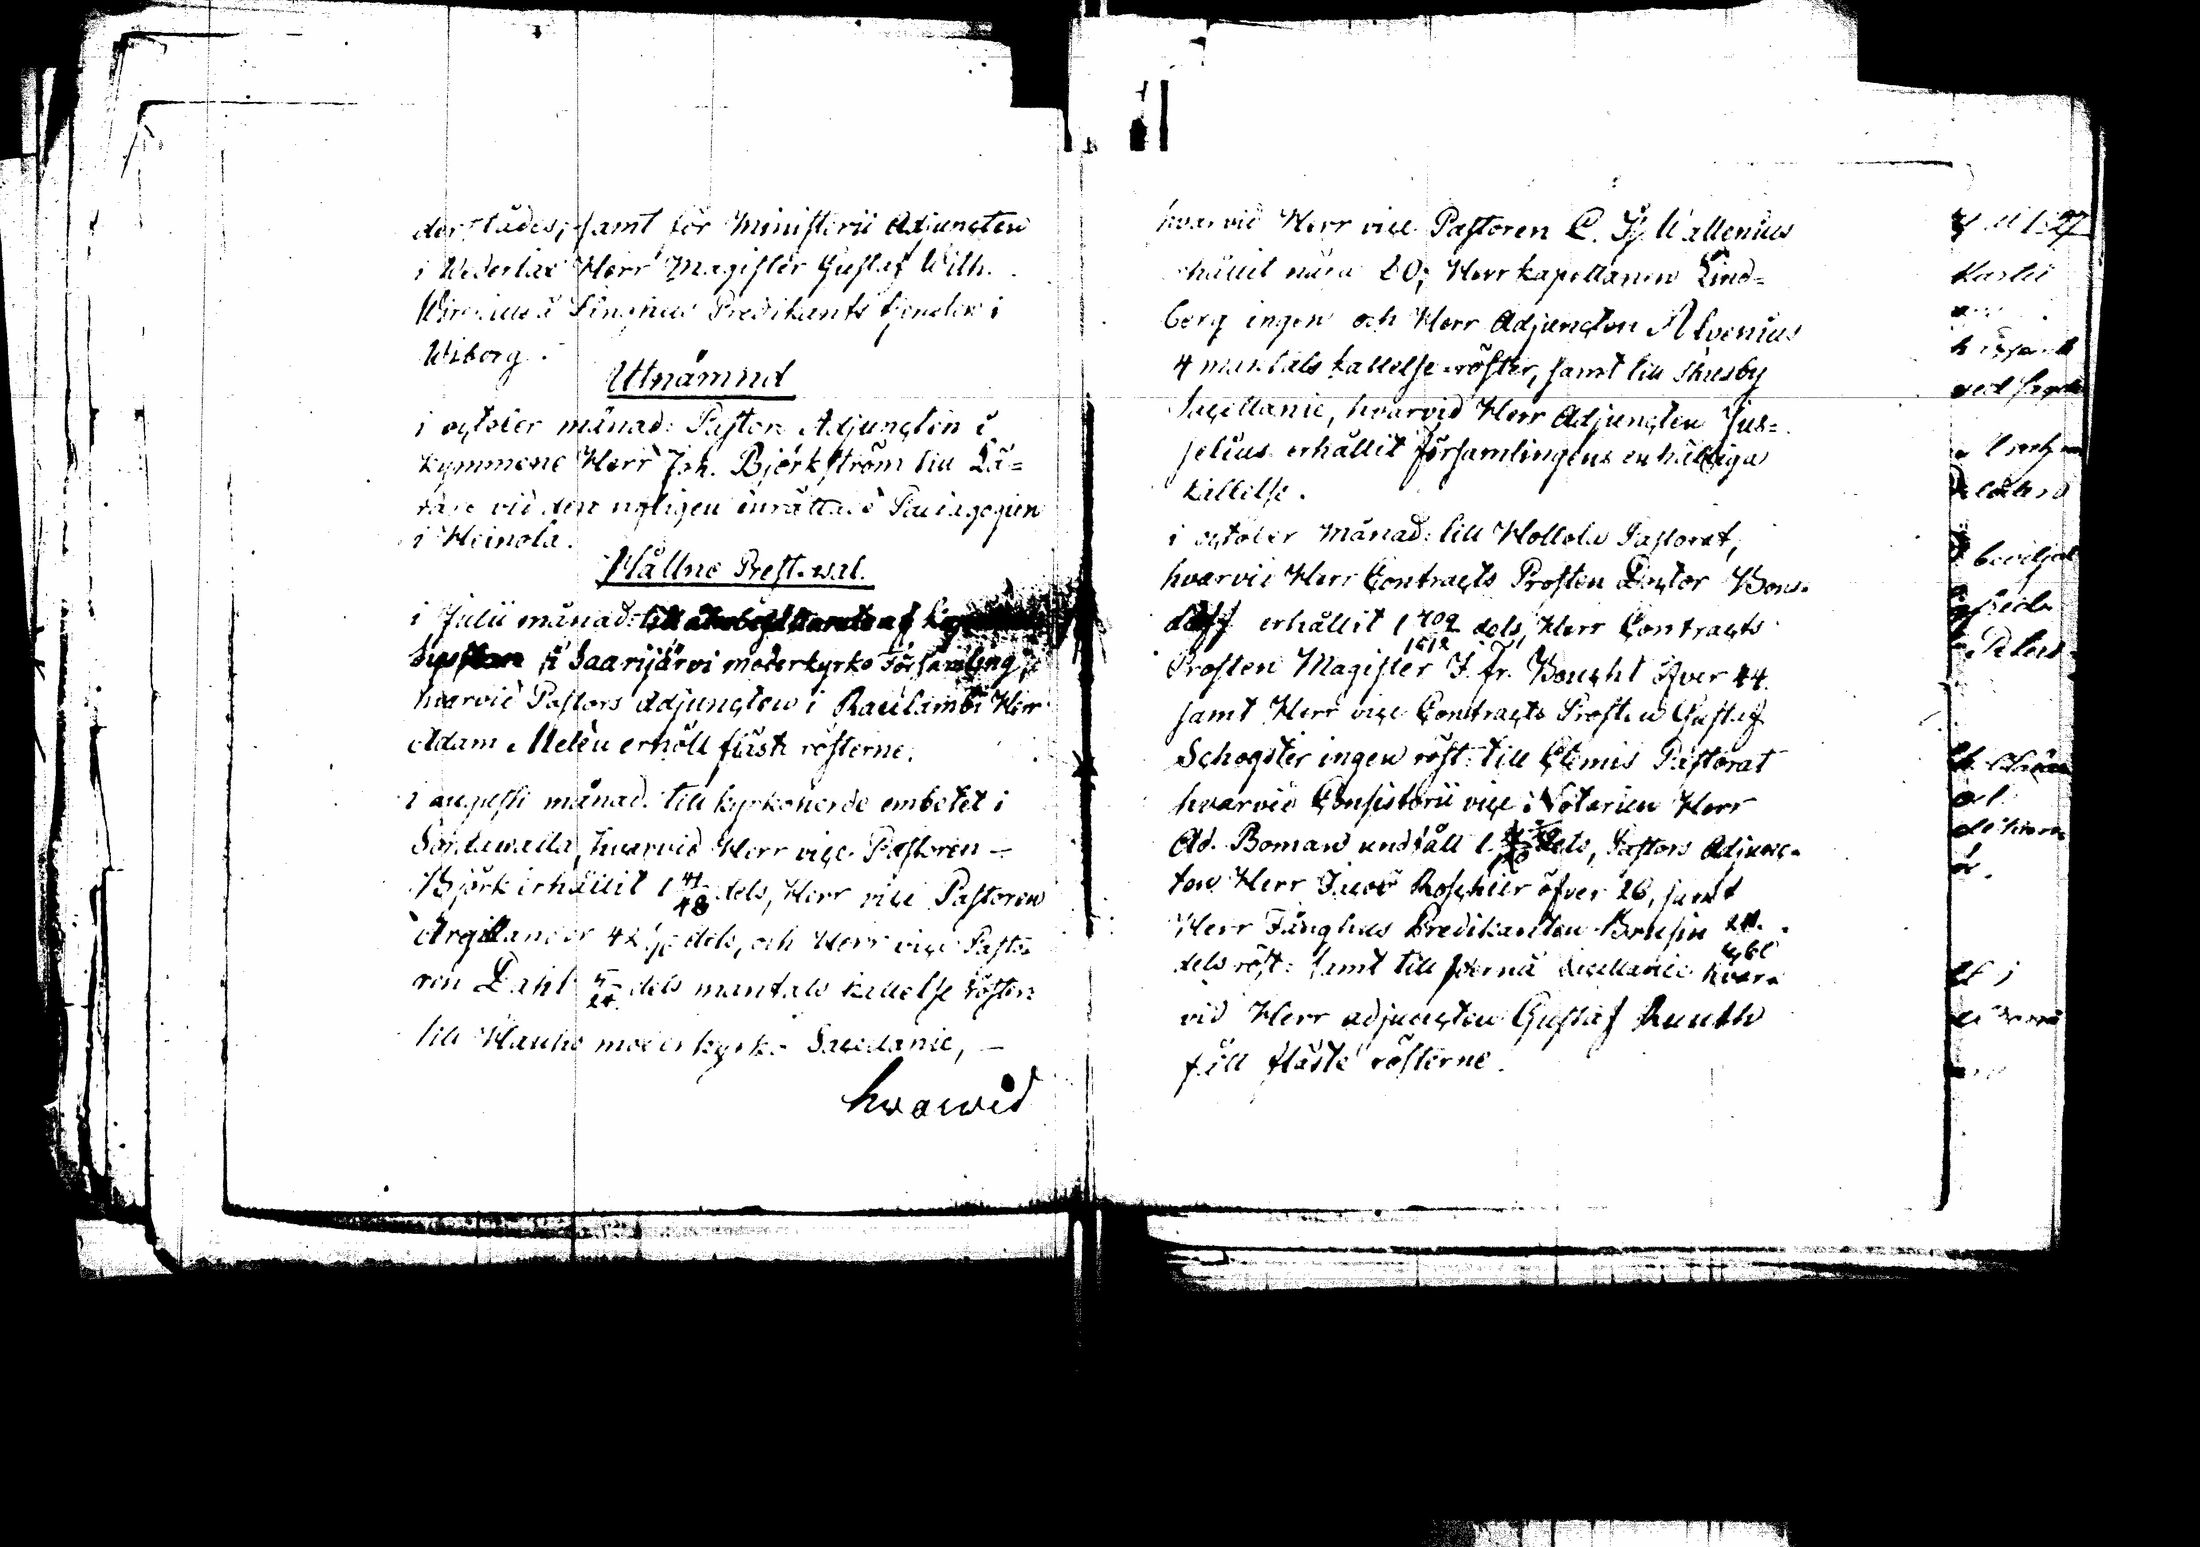 derstädes, samt för Ministerii Adjuncten
i Wederlax Herr Magister Gustaf Wilh.
Predikants tjensten i
Wiborg.
Utnämnd
i october månad: Pastors Adjuncten i
Kymmene Herr Joh. Björkström till Lä=
rare vid den nyligen inrättade Paedagogien
i Heinola.
Hållne Prest-wal.
i Julii månad:
i Saarijärvi moderkyrko Församling,
hvarvid Pastors Adjuncten i Rautlambi Herr
Adam Melén erhöll flästa rösterne.
i augusti månad till kyrkoherde embetet i
Sordawalla, hvarvid Herr vice Pastoren –
Björk erhållit 1 41/48 dels, Herr vice Pastoren
Argillander dels, och Herr vice Pasto=
ren Dahl 5/24 dels mantals kallelse röster:
till Hauho moderkyrko Sacellanie, –
hvarvid
hvarvid Herr vice Pastoren C. Wallenius
erhållit nära 20; Herr kapellanen Lind=
berg ingen och Herr Adjuncten Alvenius
4 mantals kallelse-röster, samt till Thusby
Sacellanie, hvarvid Herr Adjuncten Jus=
selius erhållit församlingens enhälliga
kallelse.
i october månad: till Hollola Pastorat,
hvarvid Herr Contracts Prosten Doctor Bons=
dorff erhållit 1 709/1512 dels, Herr Contracts
Prosten Magister J. Fr. Bonght öfver 44
samt Herr vice Contracts Prosten Gustaf
Schogster ingen röst: till Elimä Pastorat
hvarvid Consistorii vice Notarien Herr
Ad. Boman undfått dels, Pastors Adjunc=
ten Herr Jacob Roschier öfver 26, samt
Herr Fånghus Predikanten Brusin
dels röst: samt till Pernå Sacellanie hvar=
vid Herr adjuncten Gustaf Ruuth
fått fläste rösterne.